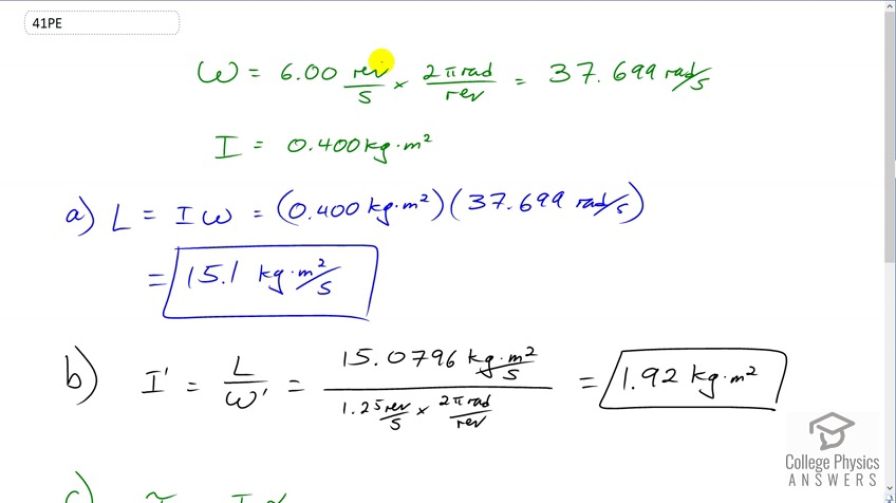 41PE
ω = 6.00 rev/s × 2π rad/rev = 37.699 rad/s
I = 0.400 kg·m²
a) L = Iω = (0.400 kg·m²)(37.699 rad/s)
= 15.1 kg·m²/s
b) I' = L/ω' = 15.0796 kg·m²/s / 1.25 rev/s × 2π rad/rev = 1.92 kg·m²
College Physics
ANSWERS
c)